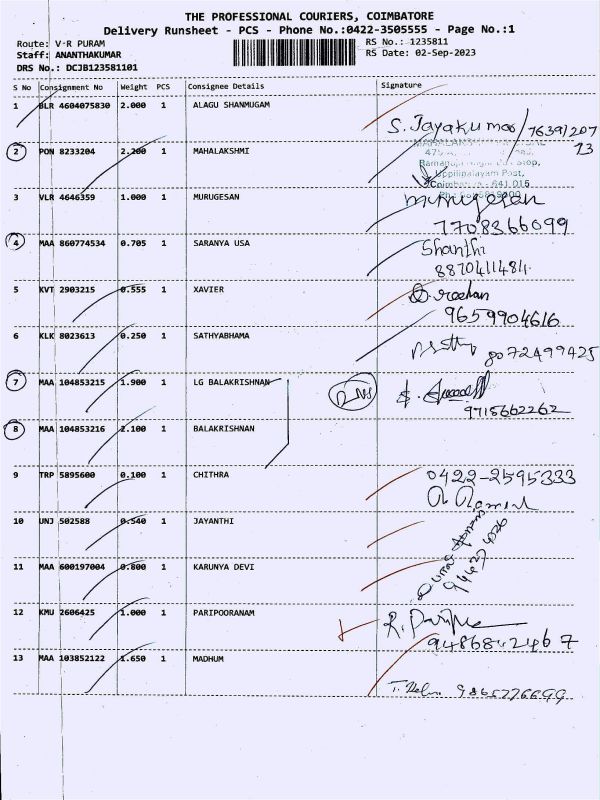 THE PROFESSIONAL COURIERS, COIMBATORE
Delivery Runsheet - PCS - Phone No.:0422-3505555 - Page No.:1
Route: V-R PURAM
RS No.: 1235811
Staff: ANANTHAKUMAR
RS Date: 02-Sep-2023
DRS No.: DCJB123581101
S No Consignment No Weight PCS Consignee Details Signature
1 BLR 4604075830 2.000 1 ALAGU SHANMUGAM
S. Jayakumar / 76391207
73
2 PON 8233204 2.200 1 MAHALAKSHMI
Uppilipalayam Post,
Coimbatore - 641 015
3 VLR 4646359 1.000 1 MURUGESAN
Murugesan
7708366099
4 MAA 860774534 0.705 1 SARANYA USA
Shanthi
8870411481
5 KVT 2903215 0.555 1 XAVIER
9659904616
6 KLK 8023613 0.250 1 SATHYABHAMA
8072499425
7 MAA 104853215 1.900 1 LG BALAKRISHNAN
9715662262
8 MAA 104853216 2.100 1 BALAKRISHNAN
9 TRP 5895600 0.100 1 CHITHRA
0422-2595333
10 UNJ 502588 0.540 1 JAYANTHI
11 MAA 600197004 0.800 1 KARUNYA DEVI
12 KMU 2606425 1.000 1 PARIPOORANAM
9486842467
13 MAA 103852122 1.650 1 MADHUM